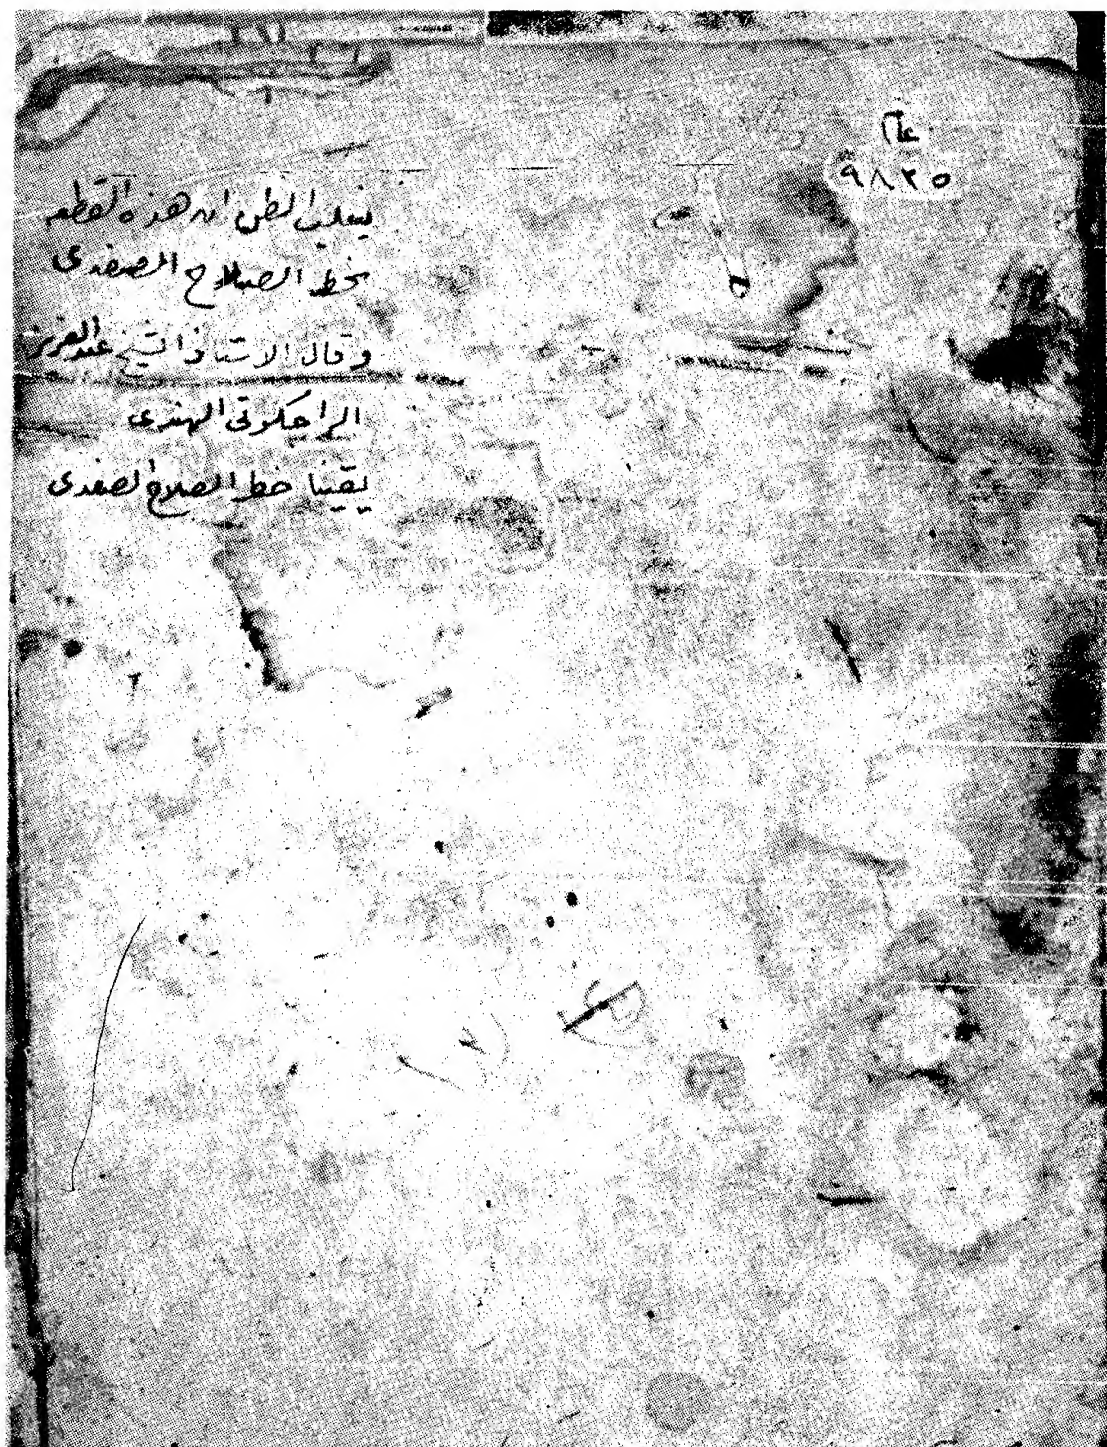 عام
٩٨٢٥
يغلب الظن ان هذه القطعه
بخط الصلاح الصفدى
وقال الاستاذ الشيخ عبد العزيز
الراجكوتى الهندى
يقينا خط الصلاح الصفدى